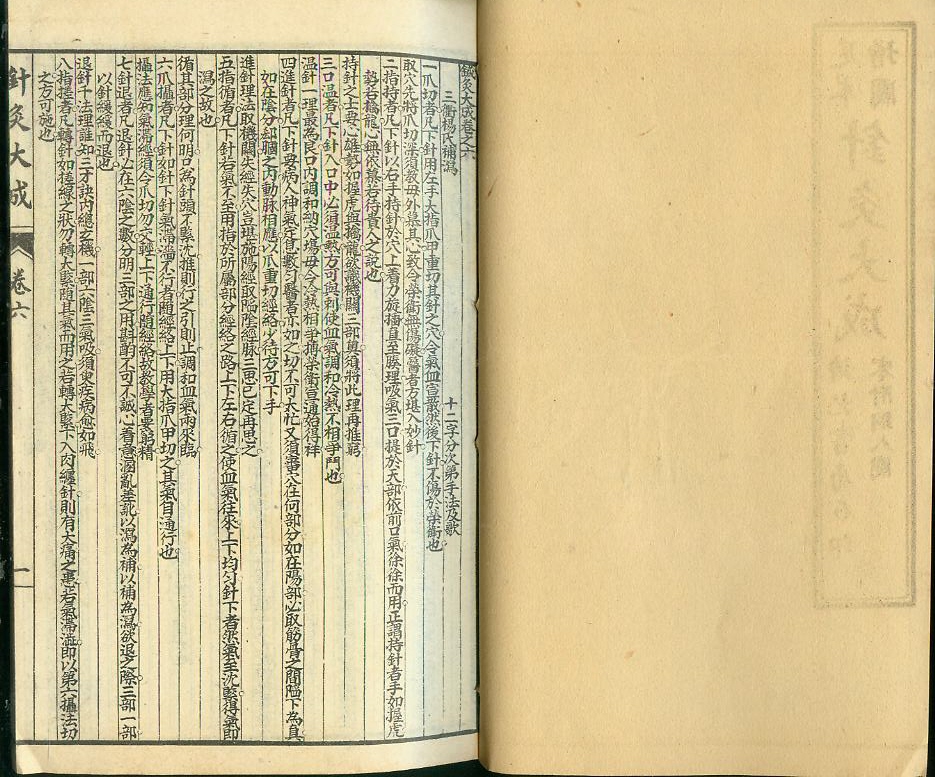 鍼灸大成卷之六
三衢楊氏補瀉 十二字分次第手法及歌
一爪切者凡下針用左手大指爪甲重切其針之穴令氣血宣散然後下針不傷於榮衛也
取穴先將爪切深須教毋外慕其心致令榮衛無傷礙醫者方堪入妙針
二指持者凡下針以右手持針於穴上着力旋插直至腠理吸氣三口提於天部依前口氣徐徐而用正謂持針者手如握虎
勢若擒龍心無他慕若待貴人之說也
持針之士要心雄勢如握虎與擒龍欲識機關三部奧須將此理再推窮
三口温者凡下針入口中必須温熱方可與刺使血氣調和冷熱不相爭鬥也
温針一理最為良口内調和納穴塲毋令冷熱相爭搏榮衛宣通始得祥
四進針者凡下針要病人神氣定息數勻醫者亦如之切不可太忙又須審穴在何部分如在陽部必取筋骨之間陷下為真
如在陰分郄膕之内動脉相應以爪重切經絡少待方可下手
進針理法取機關失經失穴豈堪施陽經取陷陰經脉三思已定再思之
五指循者凡下針若氣不至用指於所屬部分經絡之路上下左右循之使血氣往來上下均勻針下者然氣至沈緊得氣即
瀉之故也
循其部分理何明只為針頭不緊沈推則行之引則止調和血氣兩來臨
六爪攝者凡下針如針下針氣滯濇不行者隨經絡上下用大指爪甲切之其氣自通行也
攝法應知氣滯經須令爪切勿交輕上下通行隨經絡故教學者要窮精
七針退者凡退針必在六陰之數分明三部之用斟酌不可不誠心着意溷亂差訛以瀉為補以補為瀉欲退之際三部一部
以針緩緩而退也
退針手法理誰知三才訣内總玄機一部六陰三氣吸須臾疾病愈如飛
八指搓者凡轉針如搓線之狀勿轉太緊隨其氣而用之若轉太緊下入肉纏針則有大痛之患若氣滯濇即以第六攝法切
之方可施也
針灸大成
卷六
一